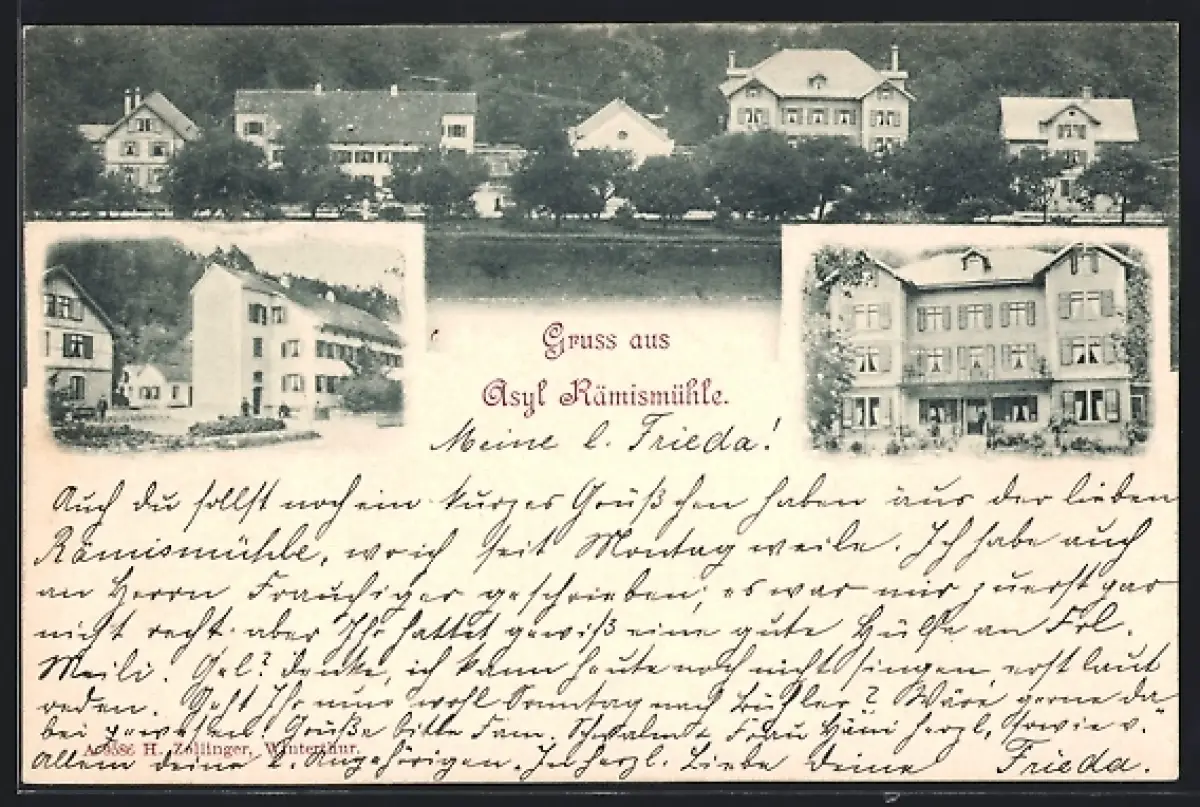 Gruss aus
Asyl Rämismühle.
Meine l. Frieda!
Auch du sollst noch ein kurzes Grüßchen haben aus der lieben
Rämismühle, wo ich seit Montag weile. Ich habe auch
an Herrn Frauchiger geschrieben; es war mir zuerst gar
nicht recht aber Ihr hattet gewiß eine gute Hülfe an Frl.
Meili. Gel? Denke, ich kann heute noch nicht singen, erst laut
reden. Geht Ihr nun wohl Sonntag nach Bühler? Wäre gerne da
bei gewesen! Grüße bitte Fam. Schwalm & Frau Häni herzl, sowie v.
allem deine l. Angehörigen. In herzl. Liebe deine Frieda.
H. Zollinger, Winterthur.